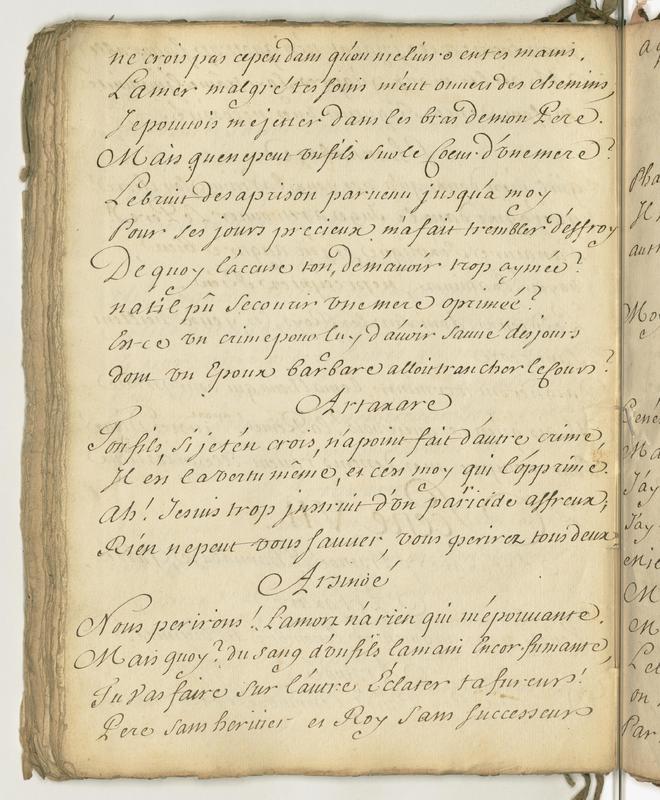 ne crois pas cependant qu'on me livre entes mains.
La mer malgré tes soins meut ouvert des chemins,
Je pouvois me jetter dans les bras de mon Pere.
Mais quenepeut un fils sur le Coeur d'une mere?
Le bruit de sa prison parvenu jusqu'a moy
Pour ses jours precieux m'a fait trembler d'effroy
De quoy l'accuse ton, dem'avoir trop aymée?
na til pû secourir une mere oprimée?
Est-ce un crime pour luy d'avoir sauvé des jours
dont un Epoux barbare alloit trancher le Cours?
Artaxare
Ton fils, si jet'en crois, n'a point fait d'autre crime,
Il est la vertu même, et c'est moy qui l'opprime.
Ah! Je suis trop instruit d'un paricide affreux,
Rien ne peut vous sauver, vous perirez tous deux
Arsinoé
Nous perirons! La mort n'a rien qui m'épouvante.
Mais quoy? du sang d'un fils la main Encor fumante,
Tu vas faire sur l'autre Éclater ta fureur!
Pere sans heritier et Roy sans successeur
a
Pha
Il
aut
Mo
e
M
J'ay
J'ay
M
M
Le
on
Par